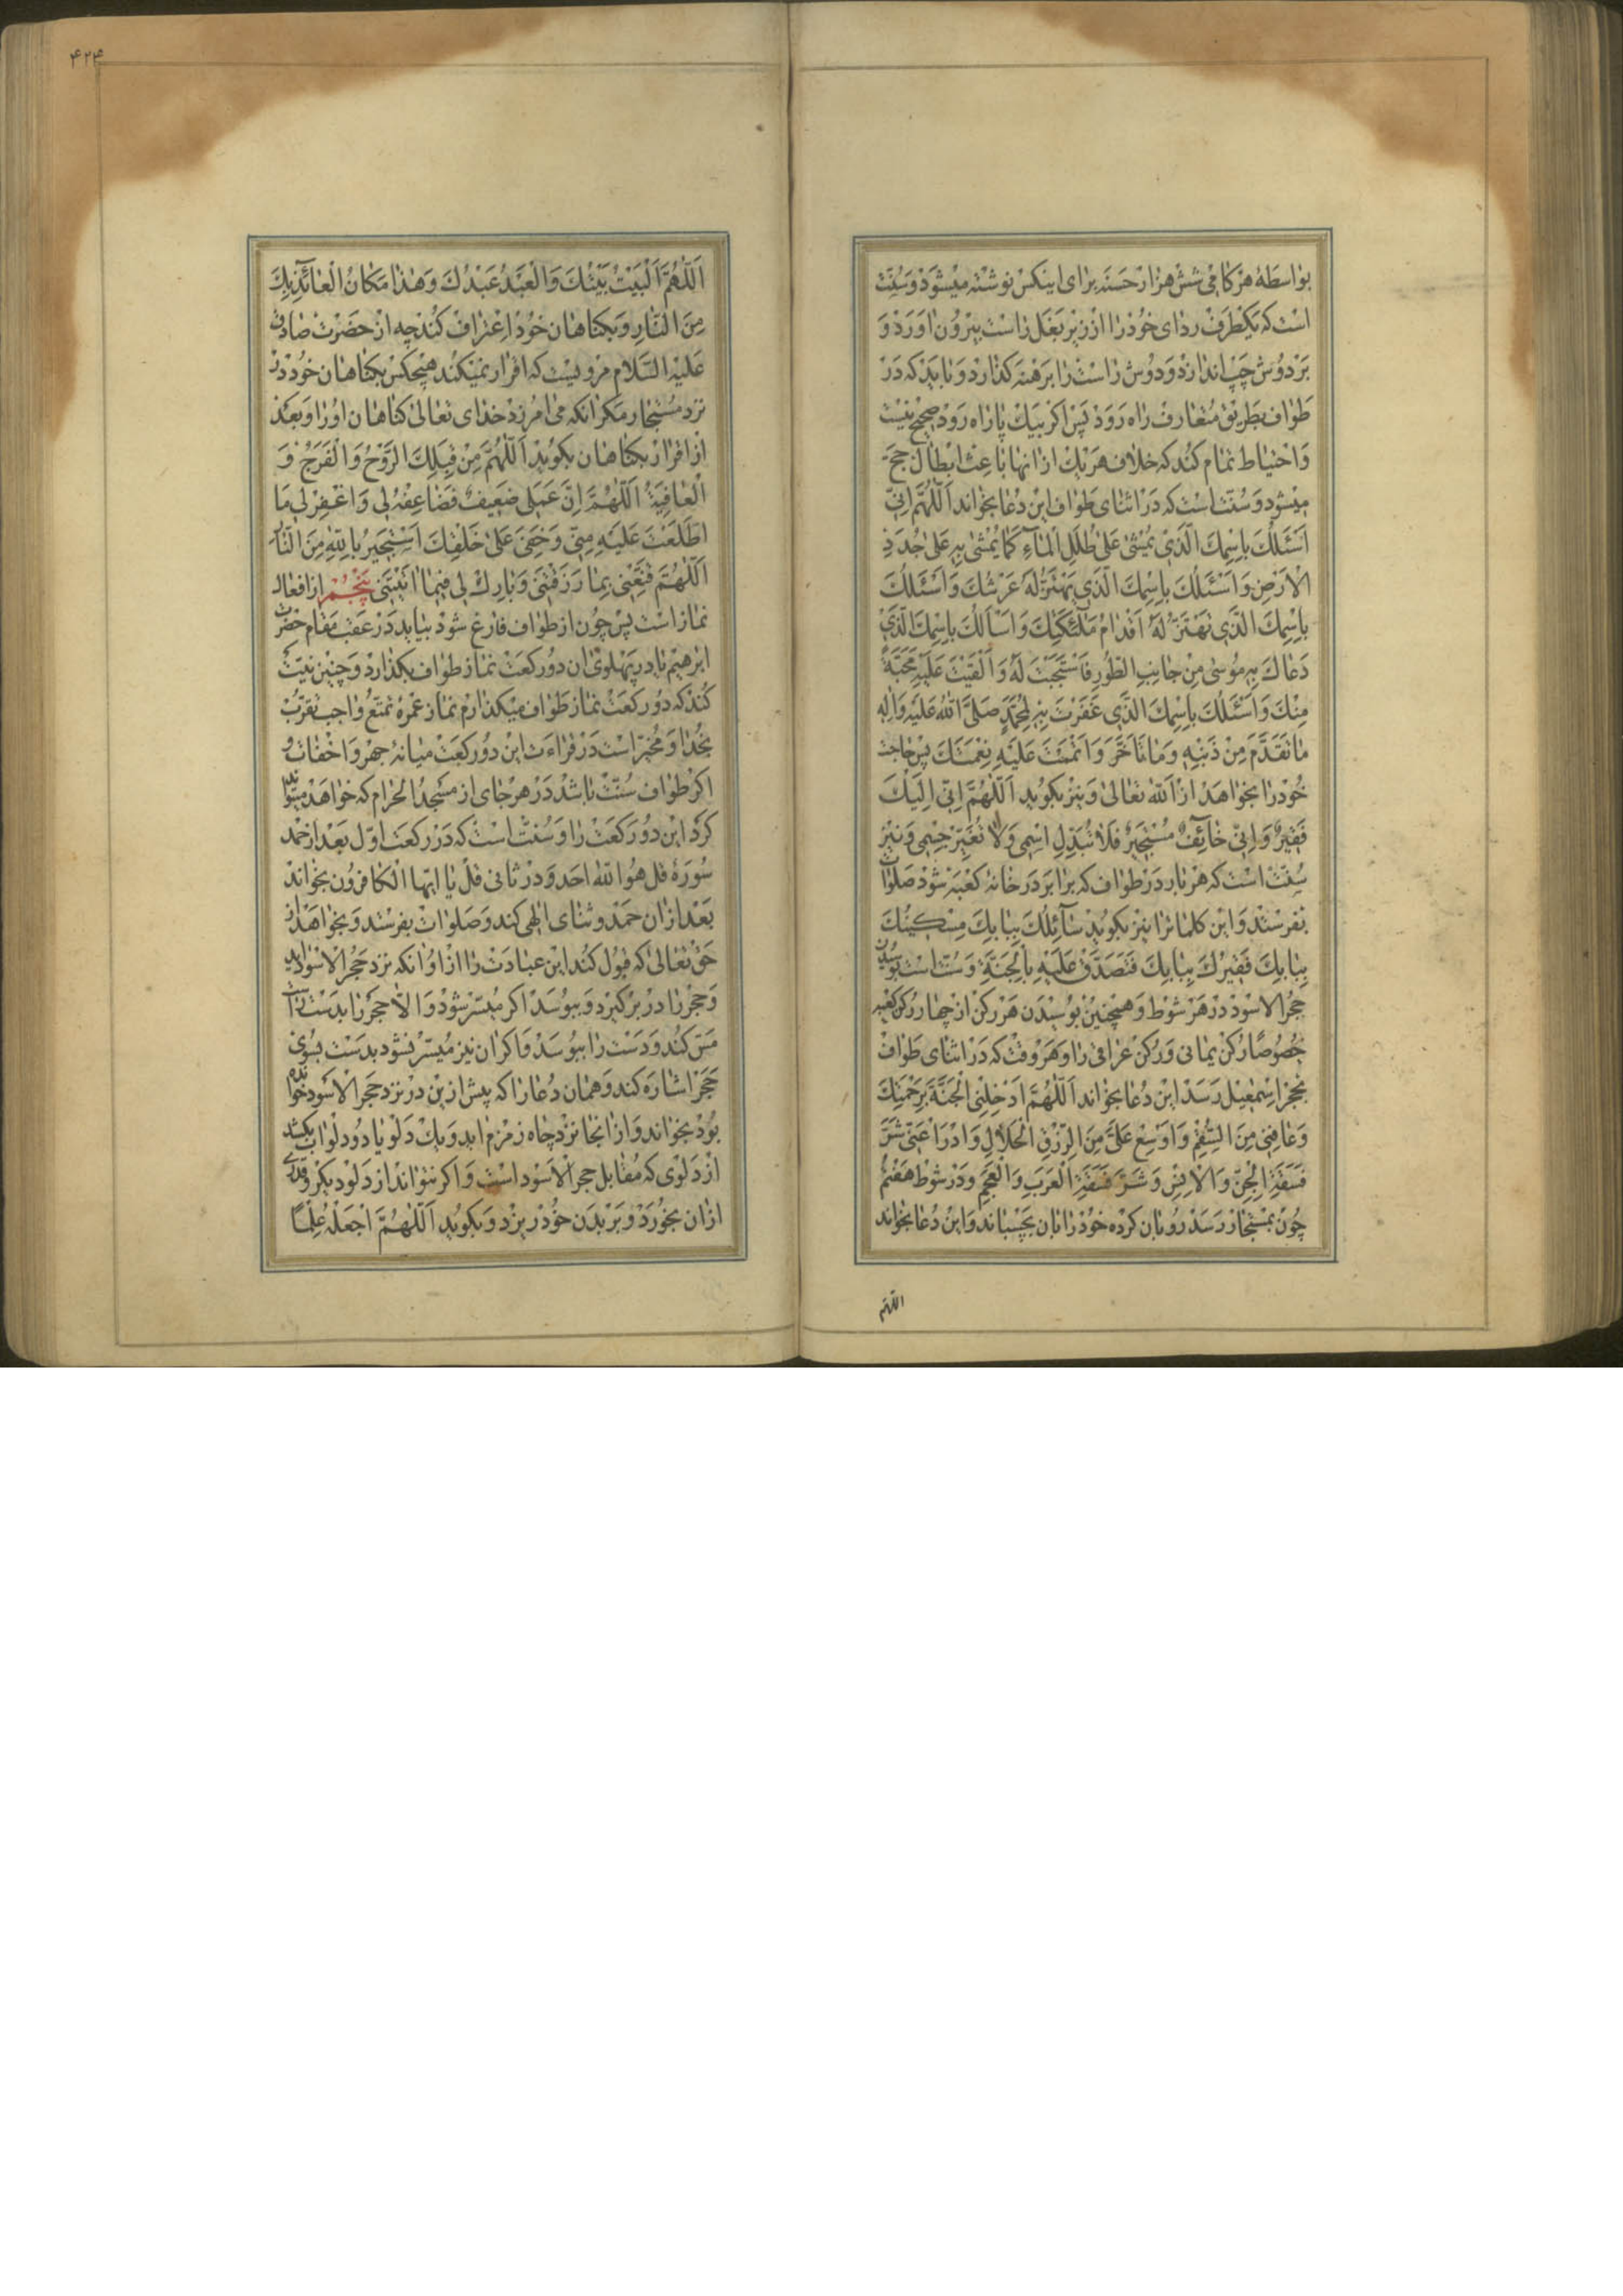 بواسطهٔ هر کامی شش هزار حسنه برای اینکس نوشته میشود و سنّت
است که یکطرف ردای خود را از زیر بغل راست بیرون اورد و
بر دوش چپ اندازد و دوش راست را برهنه کذارد و باید که در
طواف بطریق متعارف راه رود پس اکر بیک پا راه رود صحیح نیست
و احتیاط تمام کند که خلاف هر یک از انها باعث ابطال حج
میشود و سنّت است که در اثنای طواف این دعا بخواند اَللّٰهُمَّ اِنّی
اَسْئَلُكَ بِاسْمِكَ الَّذی یُمْشیٰ عَلیٰ طُلَلِ الْمآءِ کَما یُمْشیٰ بِهِ عَلیٰ جُدَدِ
الْاَرْضِ وَ اَسْئَلُكَ بِاسْمِكَ الَّذی یَهْتَزُّ لَهُ عَرْشُكَ وَ اَسْئَلُكَ
بِاسْمِكَ الَّذی تَهْتَزُّ لَهُ اَقْدامُ مَلٰٓئِکَتِكَ وَ اَسْاَلُكَ بِاسْمِكَ الَّذی
دَعاكَ بِهِ مُوسیٰ مِنْ جانِبِ الطُّورِ فَاسْتَجَبْتَ لَهُ وَ اَلْقَیْتَ عَلَیْهِ مَحَبَّةً
مِنْكَ وَ اَسْئَلُكَ بِاسْمِكَ الَّذی غَفَرْتَ بِهِ لِمُحَمَّدٍ صَلَّی اللّٰهُ عَلَیْهِ وَ اٰلِهِ
ما تَقَدَّمَ مِنْ ذَنْبِهِ وَ ما تَاَخَّرَ وَ اَتْمَمْتَ عَلَیْهِ نِعْمَتَكَ پس حاجت
خود را بخواهد از اللّه تعالی و نیز بکوید اَللّٰهُمَّ اِنّی اِلَیْكَ
فَقیرٌ وَ اِنّی خآئِفٌ مُسْتَجیرٌ فَلا تُبَدِّلِ اسْمی وَ لا تُغَیِّرْ جِسْمی و نیز
سنّت است که هر بار در طواف که برابر در خانهٔ کعبه شود صلوات
بفرستد و این کلمات را نیز بکوید سآئِلُكَ بِبابِكَ مِسْکینُكَ
بِبابِكَ فَقیرُكَ بِبابِكَ فَتَصَدَّقْ عَلَیْهِ بِالْجَنَّةِ و سنّت است بوسیدن
حجر الاسود در هر شوط و همچنین بوسیدن هر رکن از چهار رکن کعبه
خصوصًا رکن یمانی و رکن عراقی را و هر وقت که در اثنای طواف
بحجر اسمعیل رسد این دعا بخواند اَللّٰهُمَّ اَدْخِلْنِی الْجَنَّةَ بِرَحْمَتِكَ
وَ عافِنی مِنَ السُّقْمِ وَ اَوْسِعْ عَلَیَّ مِنَ الرِّزْقِ الْحَلالِ وَ ادْرَأْ عَنّی شَرَّ
فَسَقَةِ الْجِنِّ وَ الْاِنْسِ وَ شَرَّ فَسَقَةِ الْعَرَبِ وَ الْعَجَمِ و در شوط هفتم
چون بمستجار رسد رو بان کرده خود را بان بچسباند و این دعا بخواند
اللّهمّ
۴۲۴
اَللّٰهُمَّ اَلْبَیْتُ بَیْتُكَ وَ الْعَبْدُ عَبْدُكَ وَ هٰذا مَکانُ الْعآئِذِ بِكَ
مِنَ النّارِ و بکناهان خود اعتراف کند چه از حضرت صادق
علیه السّلام مرویست که اقرار نمیکند هیچکس بکناهان خود در
نزد مستجار مکر انکه می امرزد خدای تعالی کناهان او را و بعد
از اقرار بکناهان بکوید اَللّٰهُمَّ مِنْ قِبَلِكَ الرَّوْحُ وَ الْفَرَجُ وَ
الْعافِیَةُ اَللّٰهُمَّ اِنَّ عَمَلی ضَعیفٌ فَضاعِفْهُ لی وَ اغْفِرْ لی مَا
اطَّلَعْتَ عَلَیْهِ مِنّی وَ خَفِیَ عَلیٰ خَلْقِكَ اَسْتَجیرُ بِاللّٰهِ مِنَ النّارِ
اَللّٰهُمَّ قَنِّعْنی بِما رَزَقْتَنی وَ بارِكْ لی فیما اٰتَیْتَنی پنجم از افعال
نماز است پس چون از طواف فارغ شود بیاید در عقب مقام حضرت
ابرهیم یا در پهلوی ان دو رکعت نماز طواف بکذارد و چنین نیّت
کند که دو رکعت نماز طواف میکذارم نماز عمرهٔ تمتّع واجب تقرّب
بخدا و مخیّر است در قراءت این دو رکعت میانهٔ جهر و اخفات و
اکر طواف سنّت باشد در هر جای از مسجد الحرام که خواهد میتواند
کرد این دو رکعت را و سنّت است که در رکعت اوّل بعد از حمد
سورهٔ قل هو اللّه احد و در ثانی قل یا ایّها الکافرون بخواند
بعد از ان حمد و ثنای الهی کند و صلوات بفرستد و بخواهد از
حق تعالی که قبول کند این عبادت را از او انکه نزد حجر الاسود اید
و حجر را در بر کیرد و ببوسد اکر میسّر شود و الّا حجر را بدست راست
مسّ کند و دست را ببوسد و اکر ان نیز میسّر نشود بدست بسوی
حجر اشاره کند و همان دعا را که پیش از این در نزد حجر الاسود خوانده
بود بخواند و از انجا نزد چاه زمزم اید و یک دلو یا دو دلو اب بکشد
از دلوی که مقابل حجر الاسود است و اکر نتواند از دلو دیکر و قدری
از ان بخورد و بر بدن خود ریزد و بکوید اَللّٰهُمَّ اجْعَلْهُ عِلْمًا